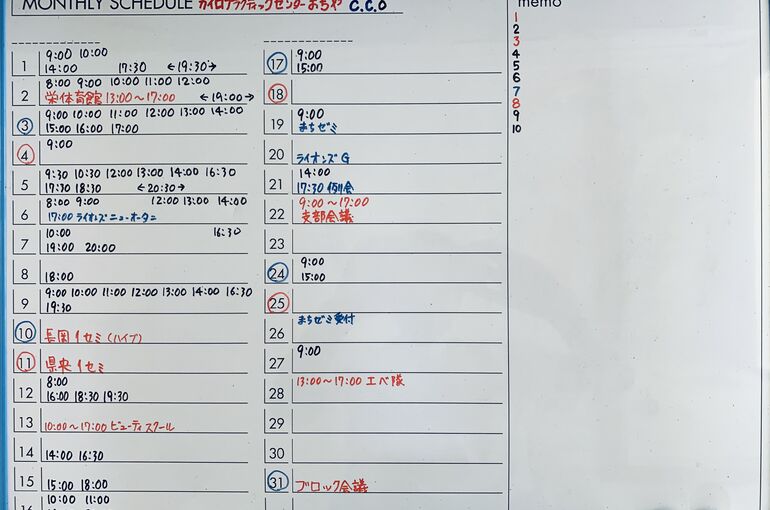 MONTHLY SCHEDULE カイロプラクティックセンターおぢや C.C.O
1 9:00 10:00
14:00 17:30 ←19:30→
2 8:00 9:00 10:00 11:00 12:00
栄体育館 13:00～17:00 ←19:00→
3 9:00 10:00 11:00 12:00 13:00 14:00
15:00 16:00 17:00
4 9:00
5 9:30 10:30 12:00 13:00 14:00 16:30
17:30 18:30 ←20:30→
6 8:00 9:00 12:00 13:00 14:00
17:00 ライオンズニューオータニ
7 10:00 16:30
19:00 20:00
8 18:00
9 9:00 10:00 11:00 12:00 13:00 14:00 16:30
19:30
10 長岡イセミ(ハイブ)
11 県央イセミ
12 8:00
16:00 18:30 19:30
13 10:00～17:00 ビューティスクール
14 14:00 16:30
15 15:00 18:00
16 10:00 11:00
17 9:00
15:00
18
19 9:00
まちゼミ
20 ライオンズG
21 14:00
17:30 例会
22 9:00～17:00
支部会議
23
24 9:00
15:00
25
26 まちゼミ受付
27 9:00
28 13:00～17:00 エベ隊
29
30
31 ブロック会議
memo
1
2
3
4
5
6
7
8
9
10